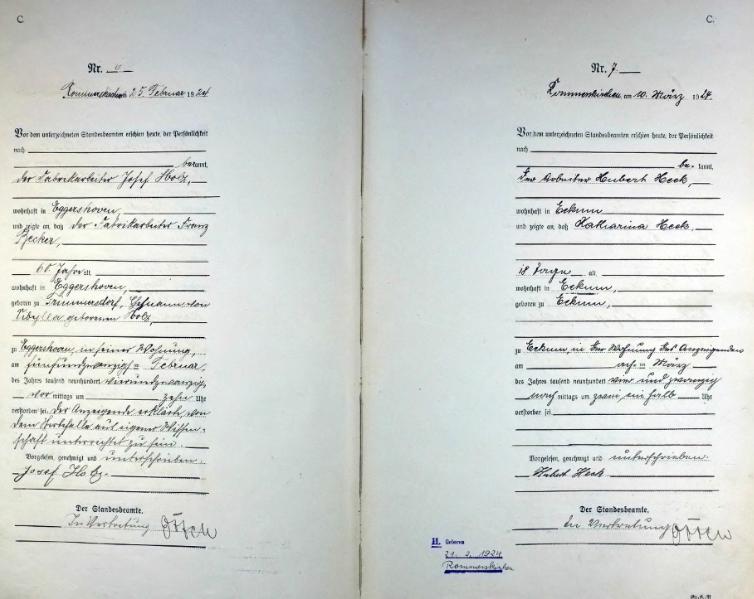 C.
Nr. 6
Rommerskirchen 25. Februar 1924
Vor dem unterzeichneten Standesbeamten erschien heute, der Persönlichkeit
nach
kannt,
der Fabrikarbeiter Josef Holz,
wohnhaft in Eggershoven,
und zeigte an, daß der Fabrikarbeiter Franz
Becker,
60 Jahre alt
wohnhaft in Eggershoven,
geboren zu Grimmersdorf, Ehemann von
Sibylla geborenen Holz,
zu Eggershoven, in seiner Wohnung,
am fünfundzwanzigsten Februar,
des Jahres tausend neunhundert vierundzwanzig,
vor mittags um zehn Uhr
verstorben sei. Der Anzeigende erklärte, von
dem Sterbefalle aus eigener Wissen-
schaft unterrichtet zu sein.
Vorgelesen, genehmigt und unterschrieben.
Josef Holz.
Der Standesbeamte.
In Vertretung
C.
Nr. 7
Rommerskirchen, am 10. März 1924.
Vor dem unterzeichneten Standesbeamten erschien heute, der Persönlichkeit
nach
be- kannt,
der Arbeiter Hubert Heck,
wohnhaft in Eckum
und zeigte an, daß Katharina Heck,
18 Tage alt
wohnhaft in Eckum,
geboren zu Eckum,
zu Eckum, in der Wohnung des Anzeigenden
am achten März
des Jahres tausend neunhundert vier und zwanzig
nach mittags um zwei ein halb Uhr
verstorben sei
Vorgelesen, genehmigt und unterschrieben.
Hubert Heck
Der Standesbeamte.
In Vertretung
H. Geboren
21. 2. 1924
Rommerskirchen